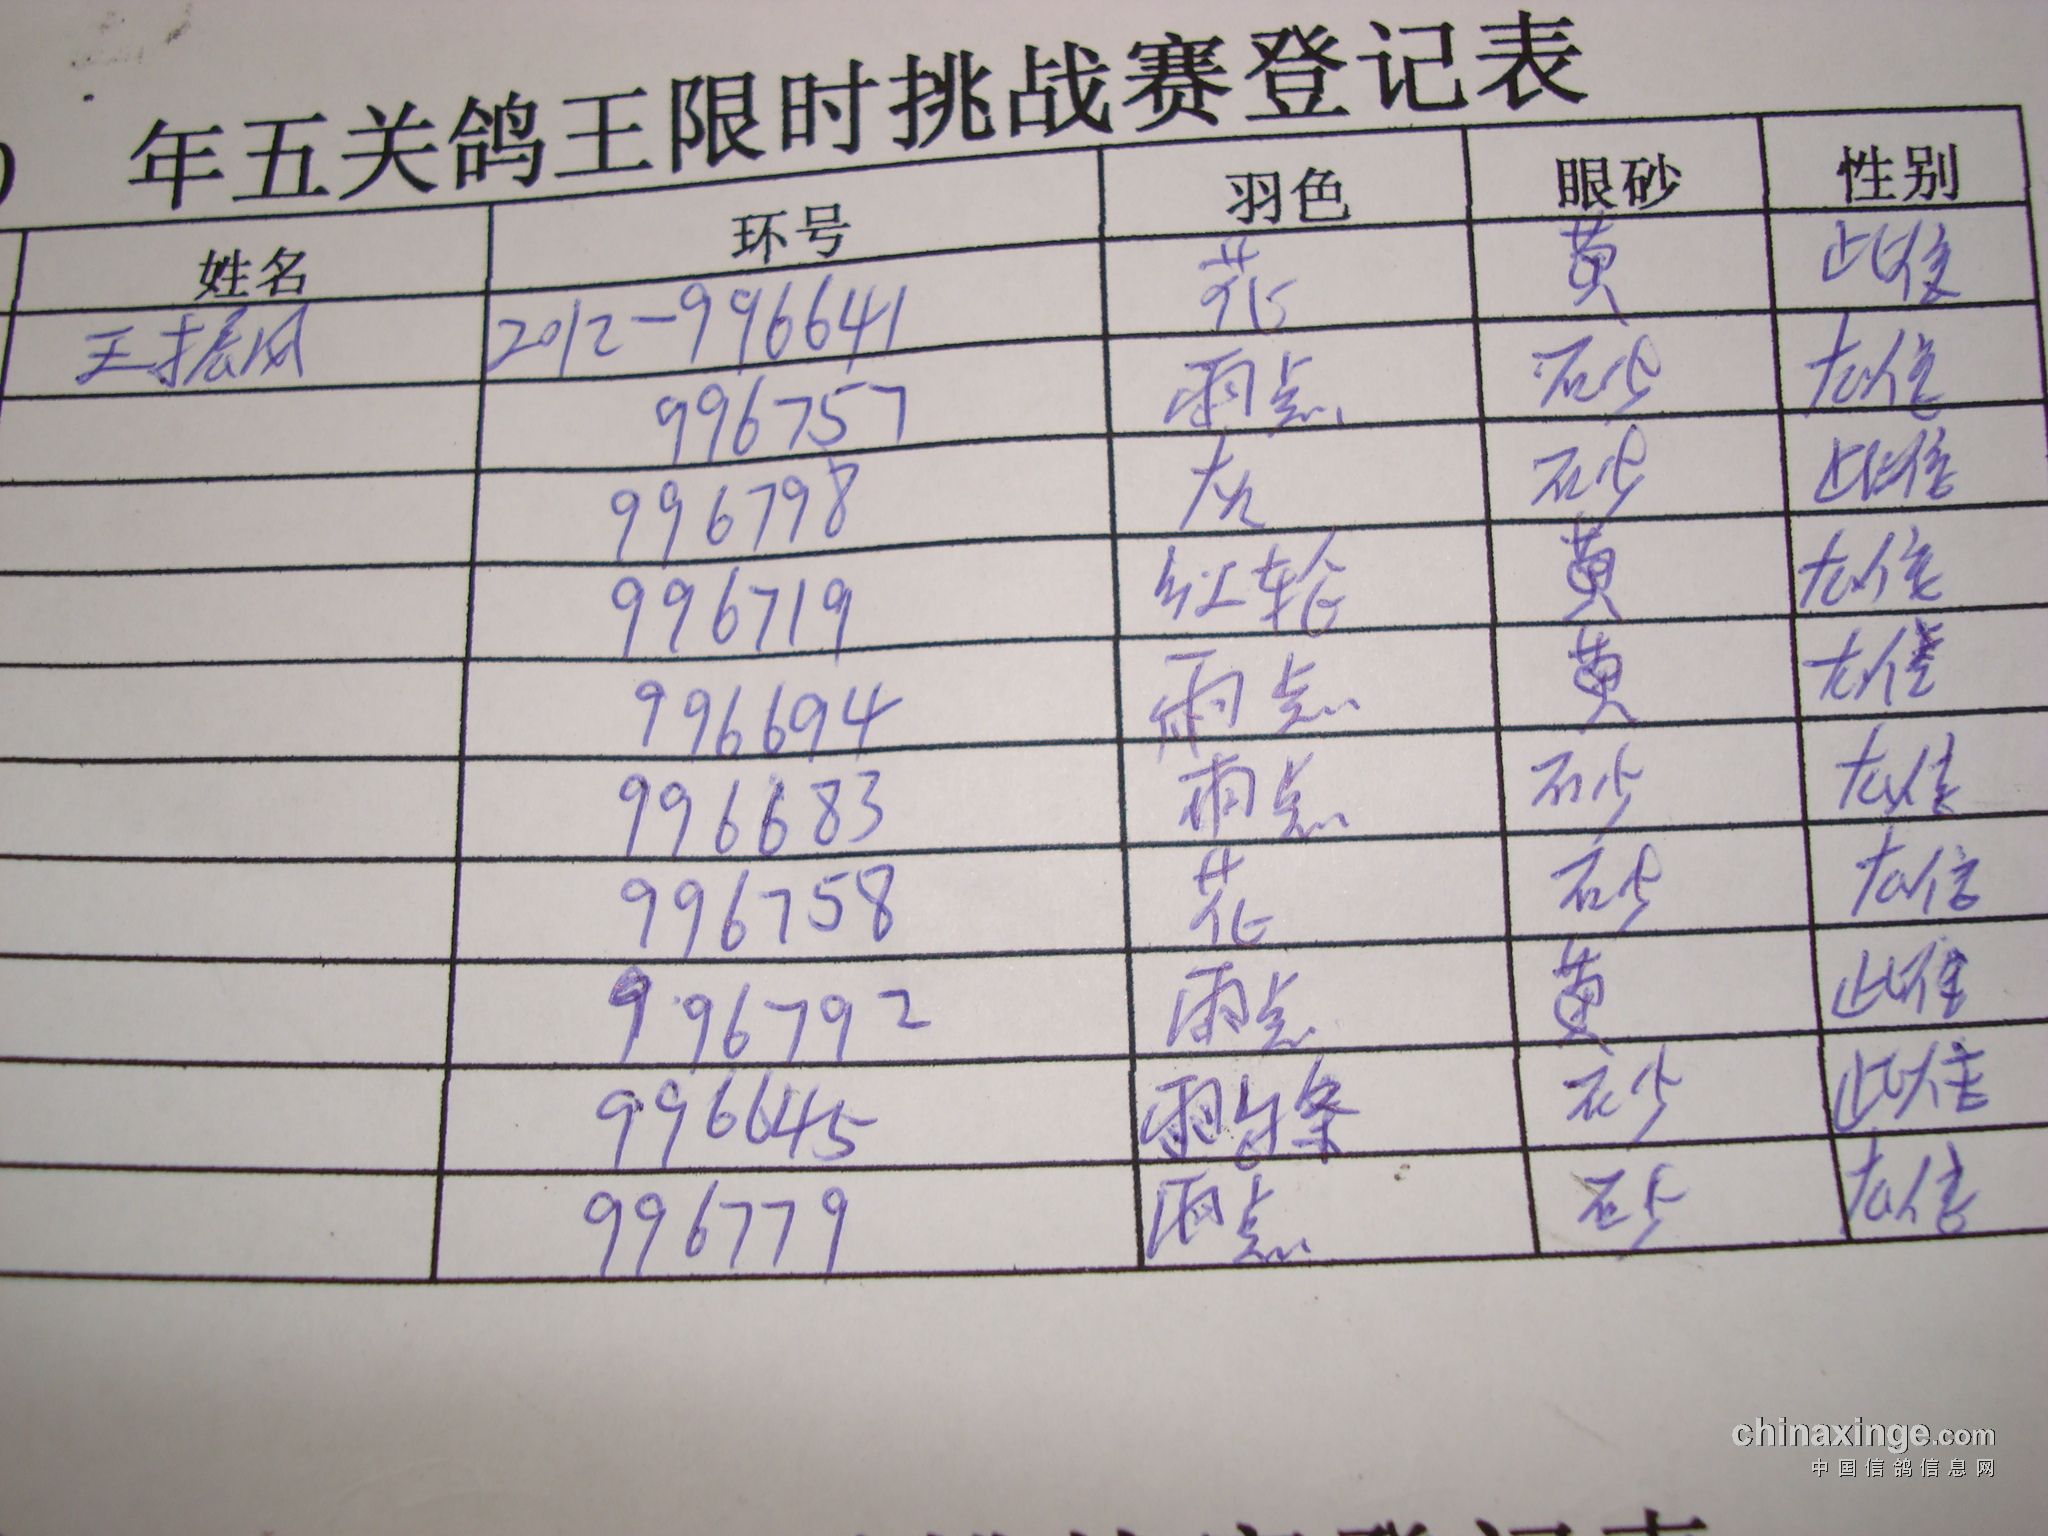 年五关鸽王限时挑战赛登记表
姓名 环号 羽色 眼砂 性别
王振风 2012-996641 花 黄 雌
996757 雨点 砂 雄
996798 灰 砂 雌
996719 红轮 黄 雄
996694 雨点 黄 雄
996683 雨点 砂 雄
996758 花 砂 雄
996792 雨点 黄 雌
996645 雨白条 砂 雌
996779 雨点 砂 雄
chinaxinge.com
中国信鸽信息网